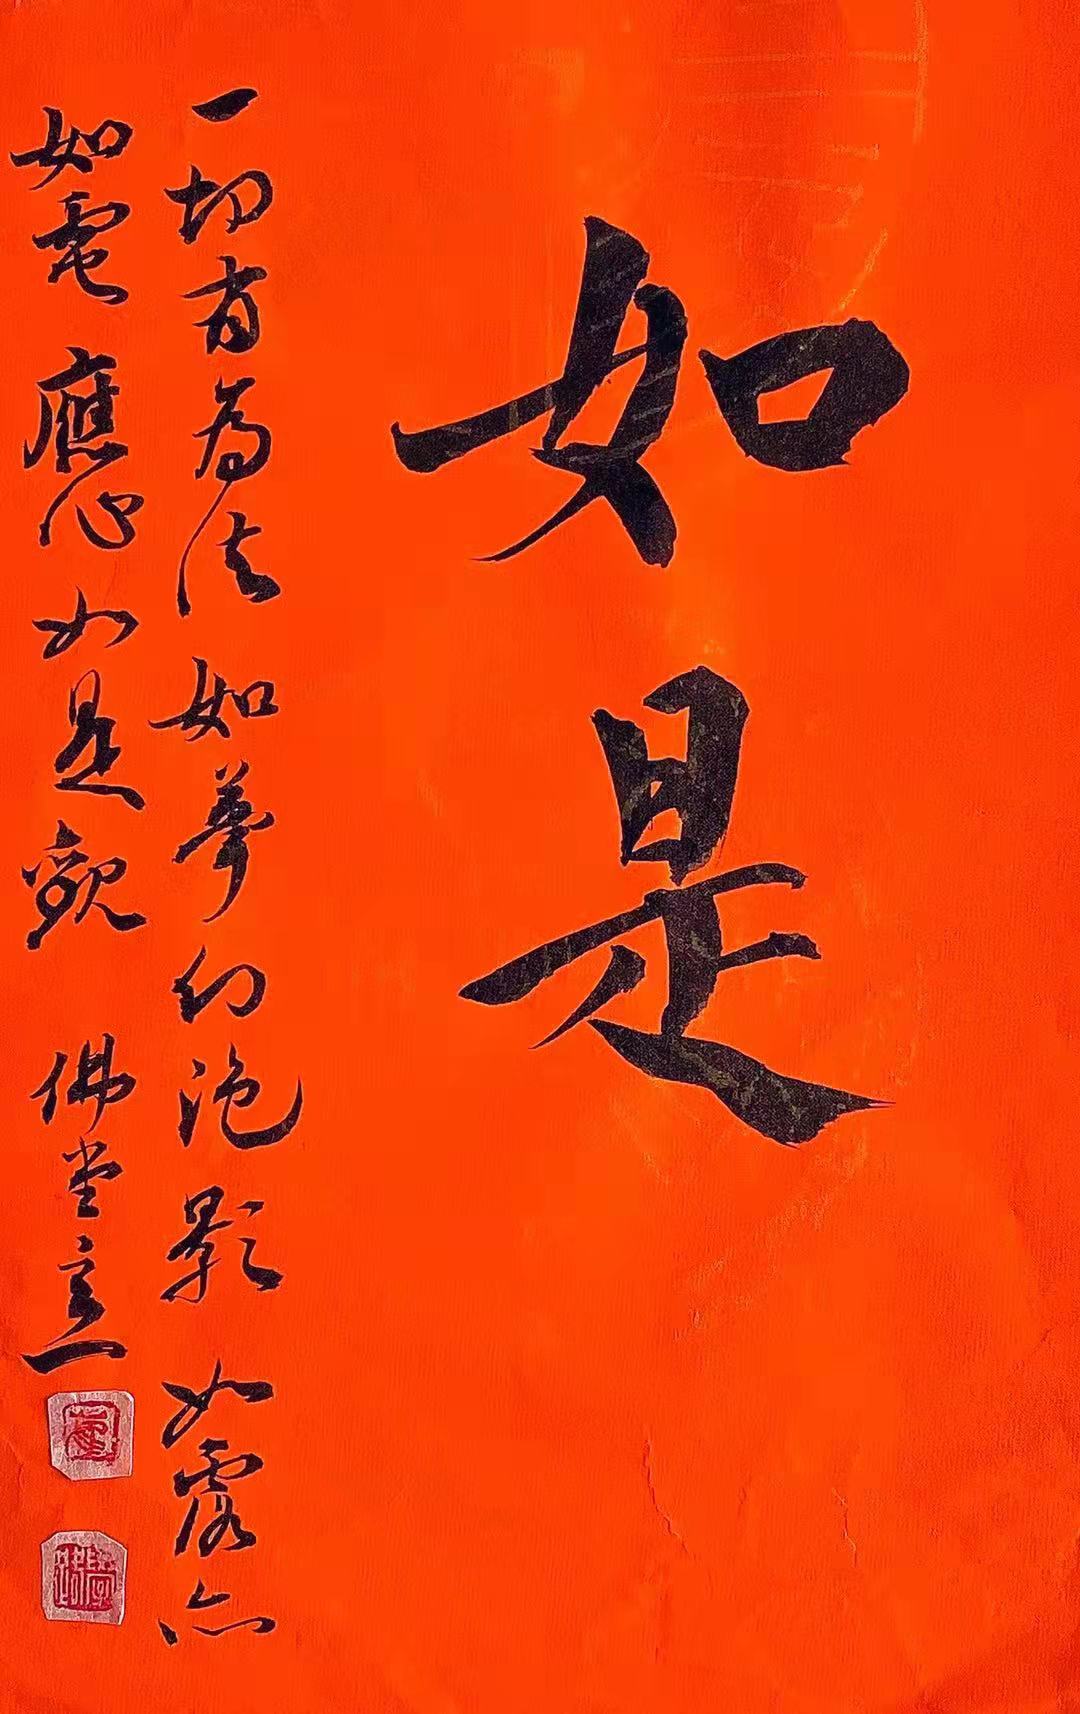 如是
一切有為法 如夢幻泡影 如露亦
如電 應如是觀 佛堂